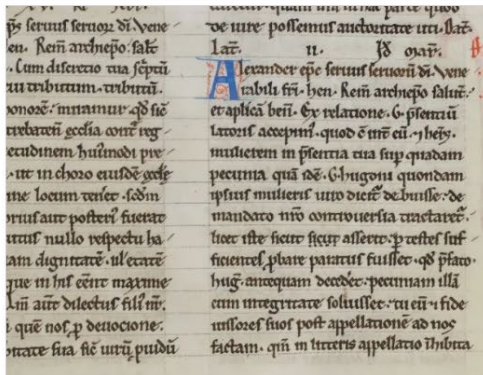 ep̄s seruus seruor̨ dī. Vene
en. Rem̄ archiep̄o. salt̄
. Cum discretio tua sc̄ptū
cui tributum. tributū.
honorē. miramur. qd̄ sic̄
trebateñ eccl̄ia cont̄ reg
etudinem hui'modi pre
. ut in choro eiusdē eccl̄e
ne locum teneт. sed̄m
orius aut posteri' fuerat
nullo respectu ha
am dignitatē. ul' etatē
que in his eēnt maxime
aūt dilectus fili' nr̄.
quē nos p̱ deuocione.
sua sic̄ uirū
de iure possemus auctoritate uti. Dat̄.
Lat̄. ii. kl̄ mar̄.
Alexander ep̄c seruus seruorū dī. Vene
rabili fr̄i. hen. Rem̄ archiep̄o salut̄.
et ap̄licā ben̄. Ex relatione. G. p̄sentiū
latoris accepim'. quod c̄ int̄ eū. ⁊
mulierem in p̄sentia tua sup̱ quadam
pecunia quā idē. G. hugoni quondam
ipsius mulieris uiro de
mandato nr̄o controuersia tractaret̄.
licet iste sicut sicut asserit. p̱ testes suf
ficientes p̱bare paratus fuisset. qd̄ p̄fato.
huḡ. antequam decedet̄. pecuniam illā
cum integritate soluisset. tu eū ⁊ fide
iussores suos post appellationē ad nos
factam. qm̄ in litteris appellatio īhibita